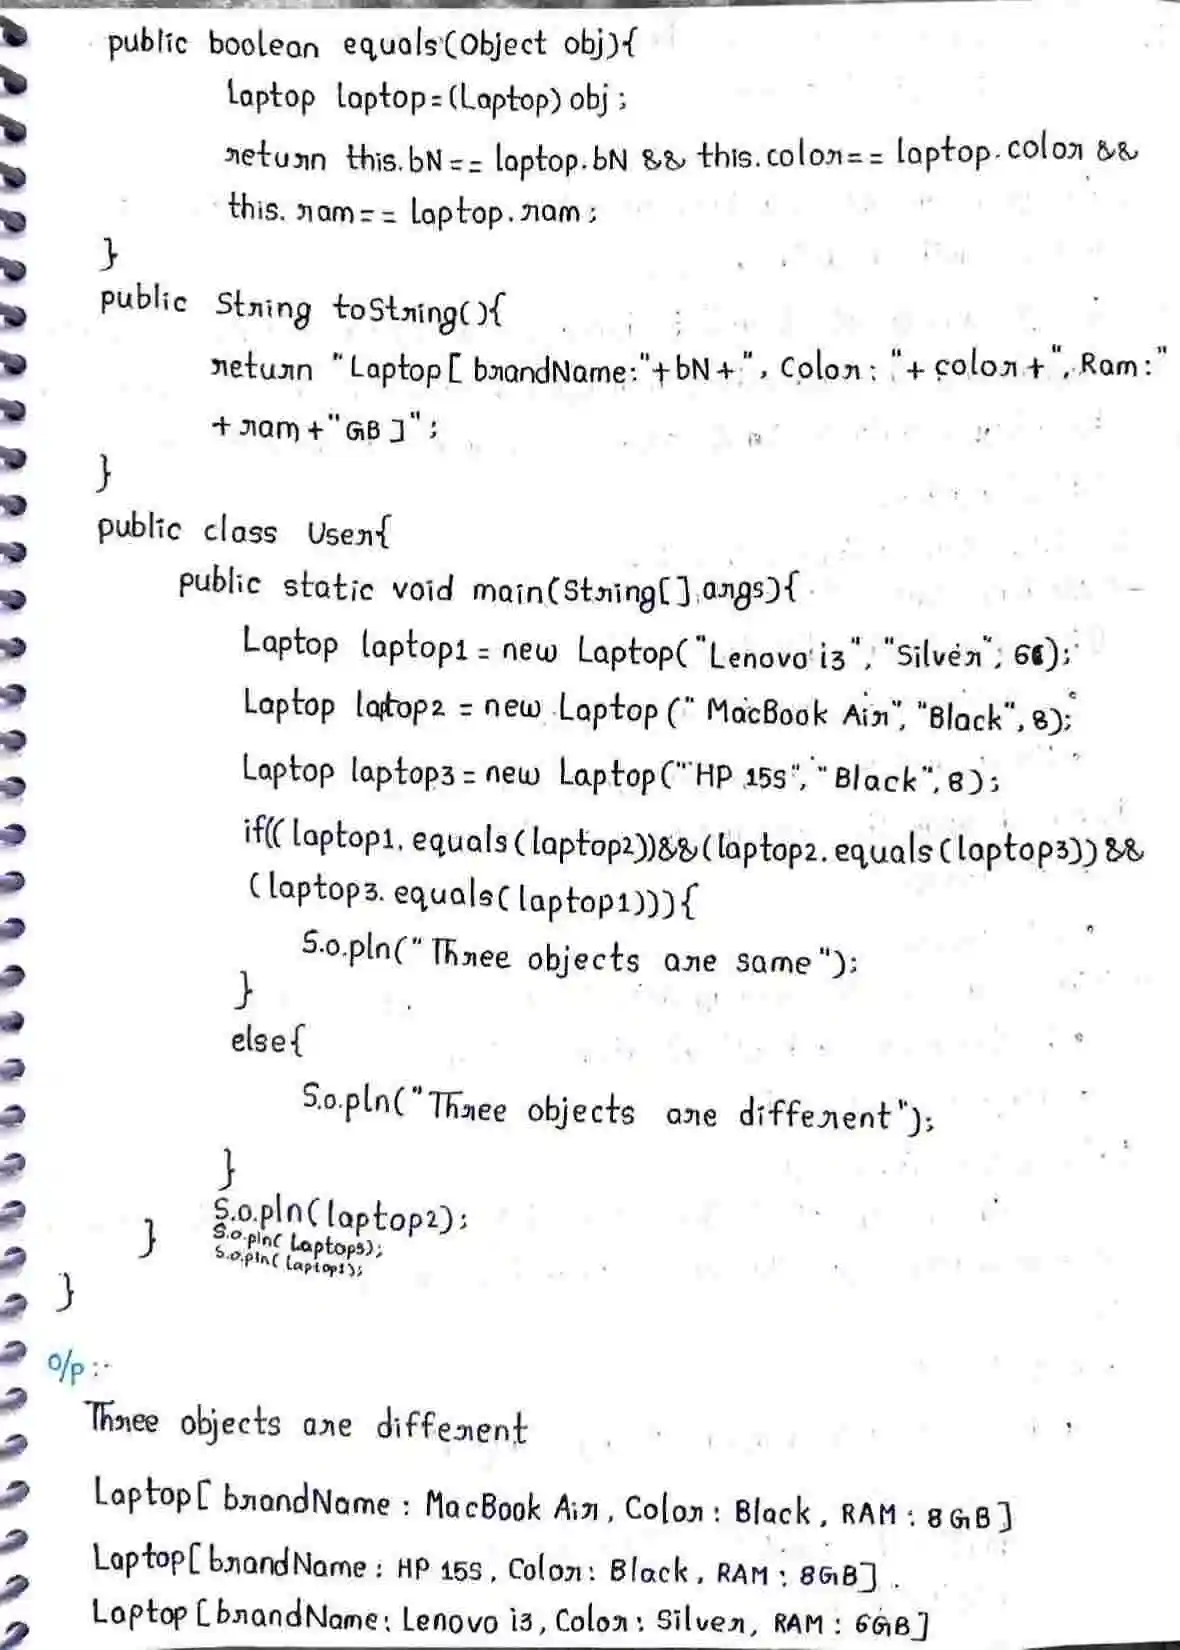 public boolean equals(Object obj){
Laptop laptop=(Laptop) obj;
return this.bN== laptop.bN && this.color== laptop.color &&
this.ram== laptop.ram;
}
public String toString(){
return "Laptop[ brandName:"+bN+", Color: "+ color+", Ram:"
+ ram +"GB ]";
}
public class User{
public static void main(String[] args){
Laptop laptop1 = new Laptop("Lenovo i3", "Silver", 6);
Laptop laptop2 = new Laptop (" MacBook Air", "Black", 8);
Laptop laptop3 = new Laptop(" HP 15S", "Black", 8);
if(( laptop1.equals(laptop2))&&(laptop2.equals(laptop3)) &&
(laptop3.equals(laptop1))){
S.o.pln(" Three objects are same");
}
else{
S.o.pln("Three objects are different");
}
S.o.pln(laptop2);
S.o.pln( Laptop3);
} S.o.pln( Laptop1);
}
O/P :-
Three objects are different
Laptop[ brandName : MacBook Air, Color : Black, RAM : 8GB]
Laptop[brandName : HP 15S, Color: Black, RAM : 8GB].
Laptop [brandName: Lenovo i3, Color : Silver, RAM : 6GB]